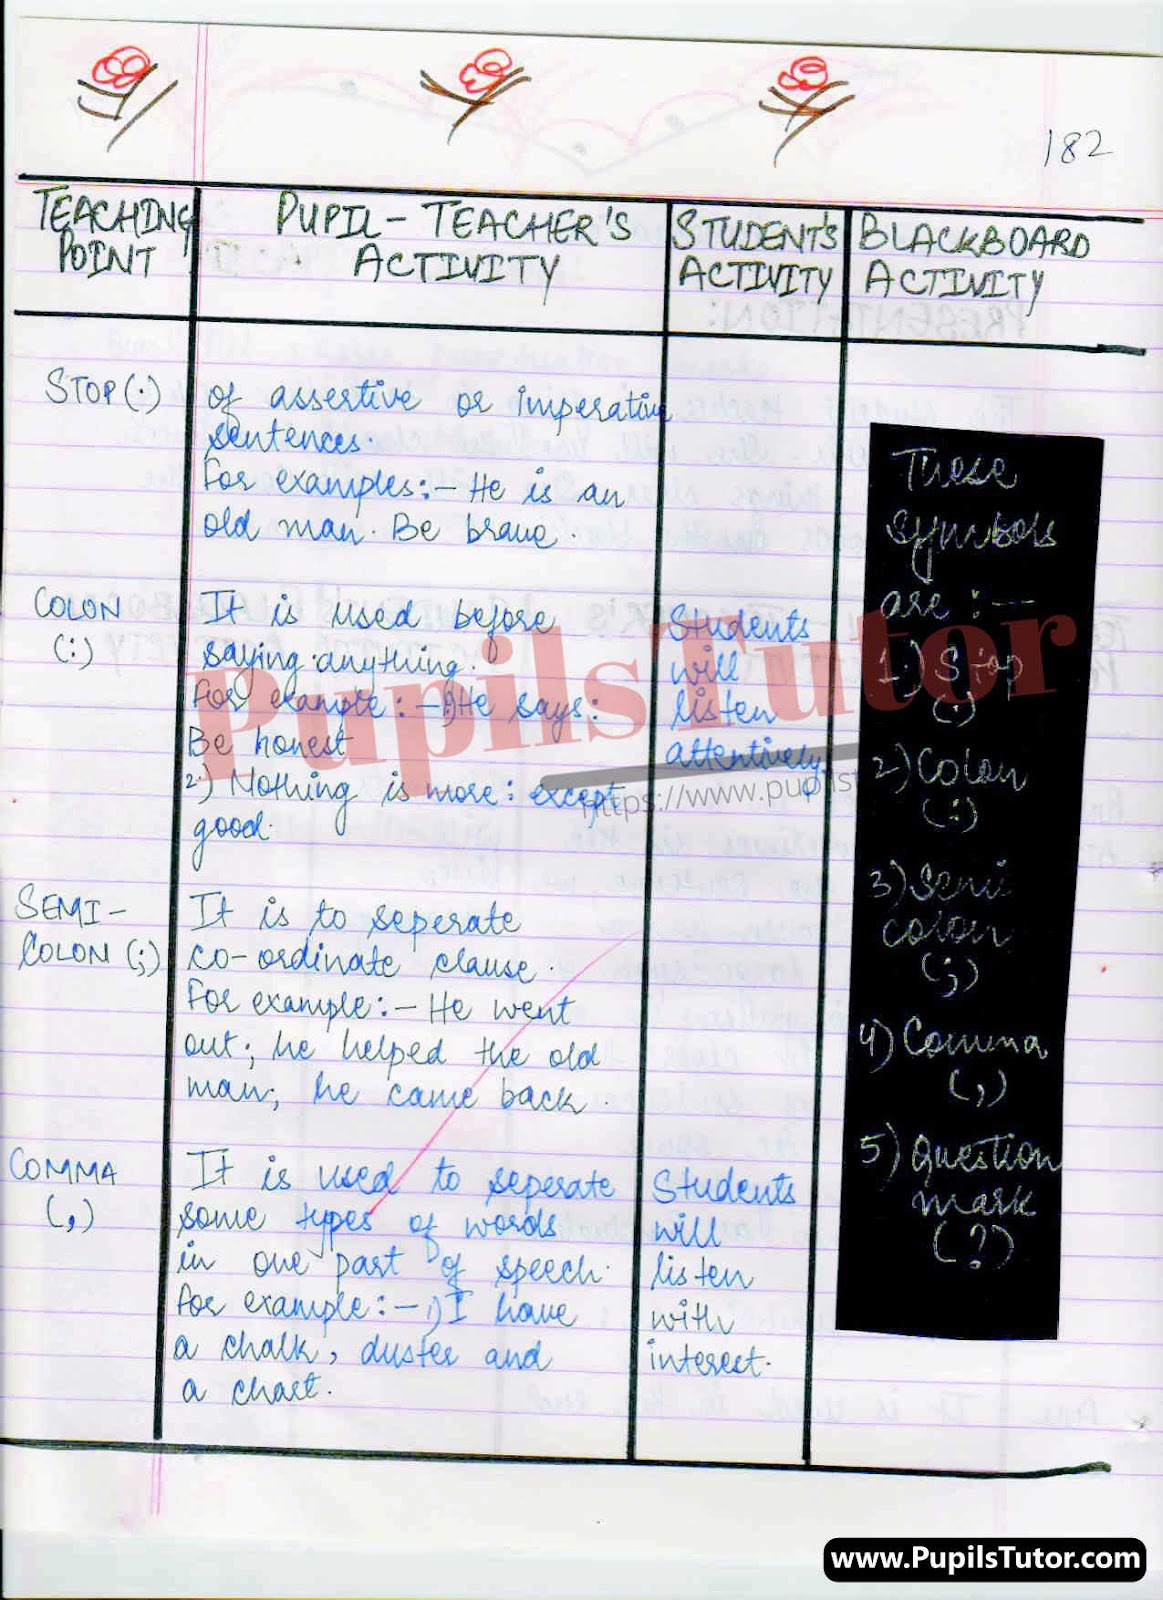 182
TEACHING
POINT
PUPIL - TEACHER'S
ACTIVITY
STUDENT'S
ACTIVITY
BLACKBOARD
ACTIVITY
STOP (.)
of assertive or imperative
sentences.
For examples:- He is an
old man. Be brave.
COLON
(:)
It is used before
saying anything.
For example:- 1) He says:
Be honest
2.) Nothing is more: except
good.
Students
will
listen
attentively
SEMI-
COLON (;)
It is to seperate
co-ordinate clause.
For example:- He went
out; he helped the old
man; he came back.
COMMA
(,)
It is used to seperate
some types of words
in one part of speech.
For example:- 1) I have
a chalk, duster and
a chart.
Students
will
listen
with
interest.
These
symbols
are :-
1.) Stop
(.)
2) Colon
(:)
3) Semi
colon
(;)
4) Comma
(,)
5) Question
mark
(?)
PupilsTutor
https://www.pupils
www.PupilsTutor.com